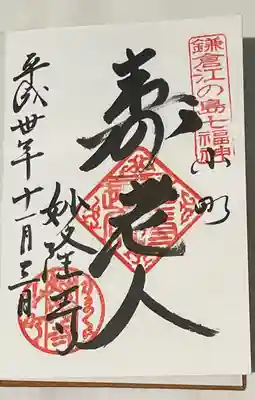 鎌倉江の島七福神
小町
寿老人
妙隆寺
平成卅年十一月三日